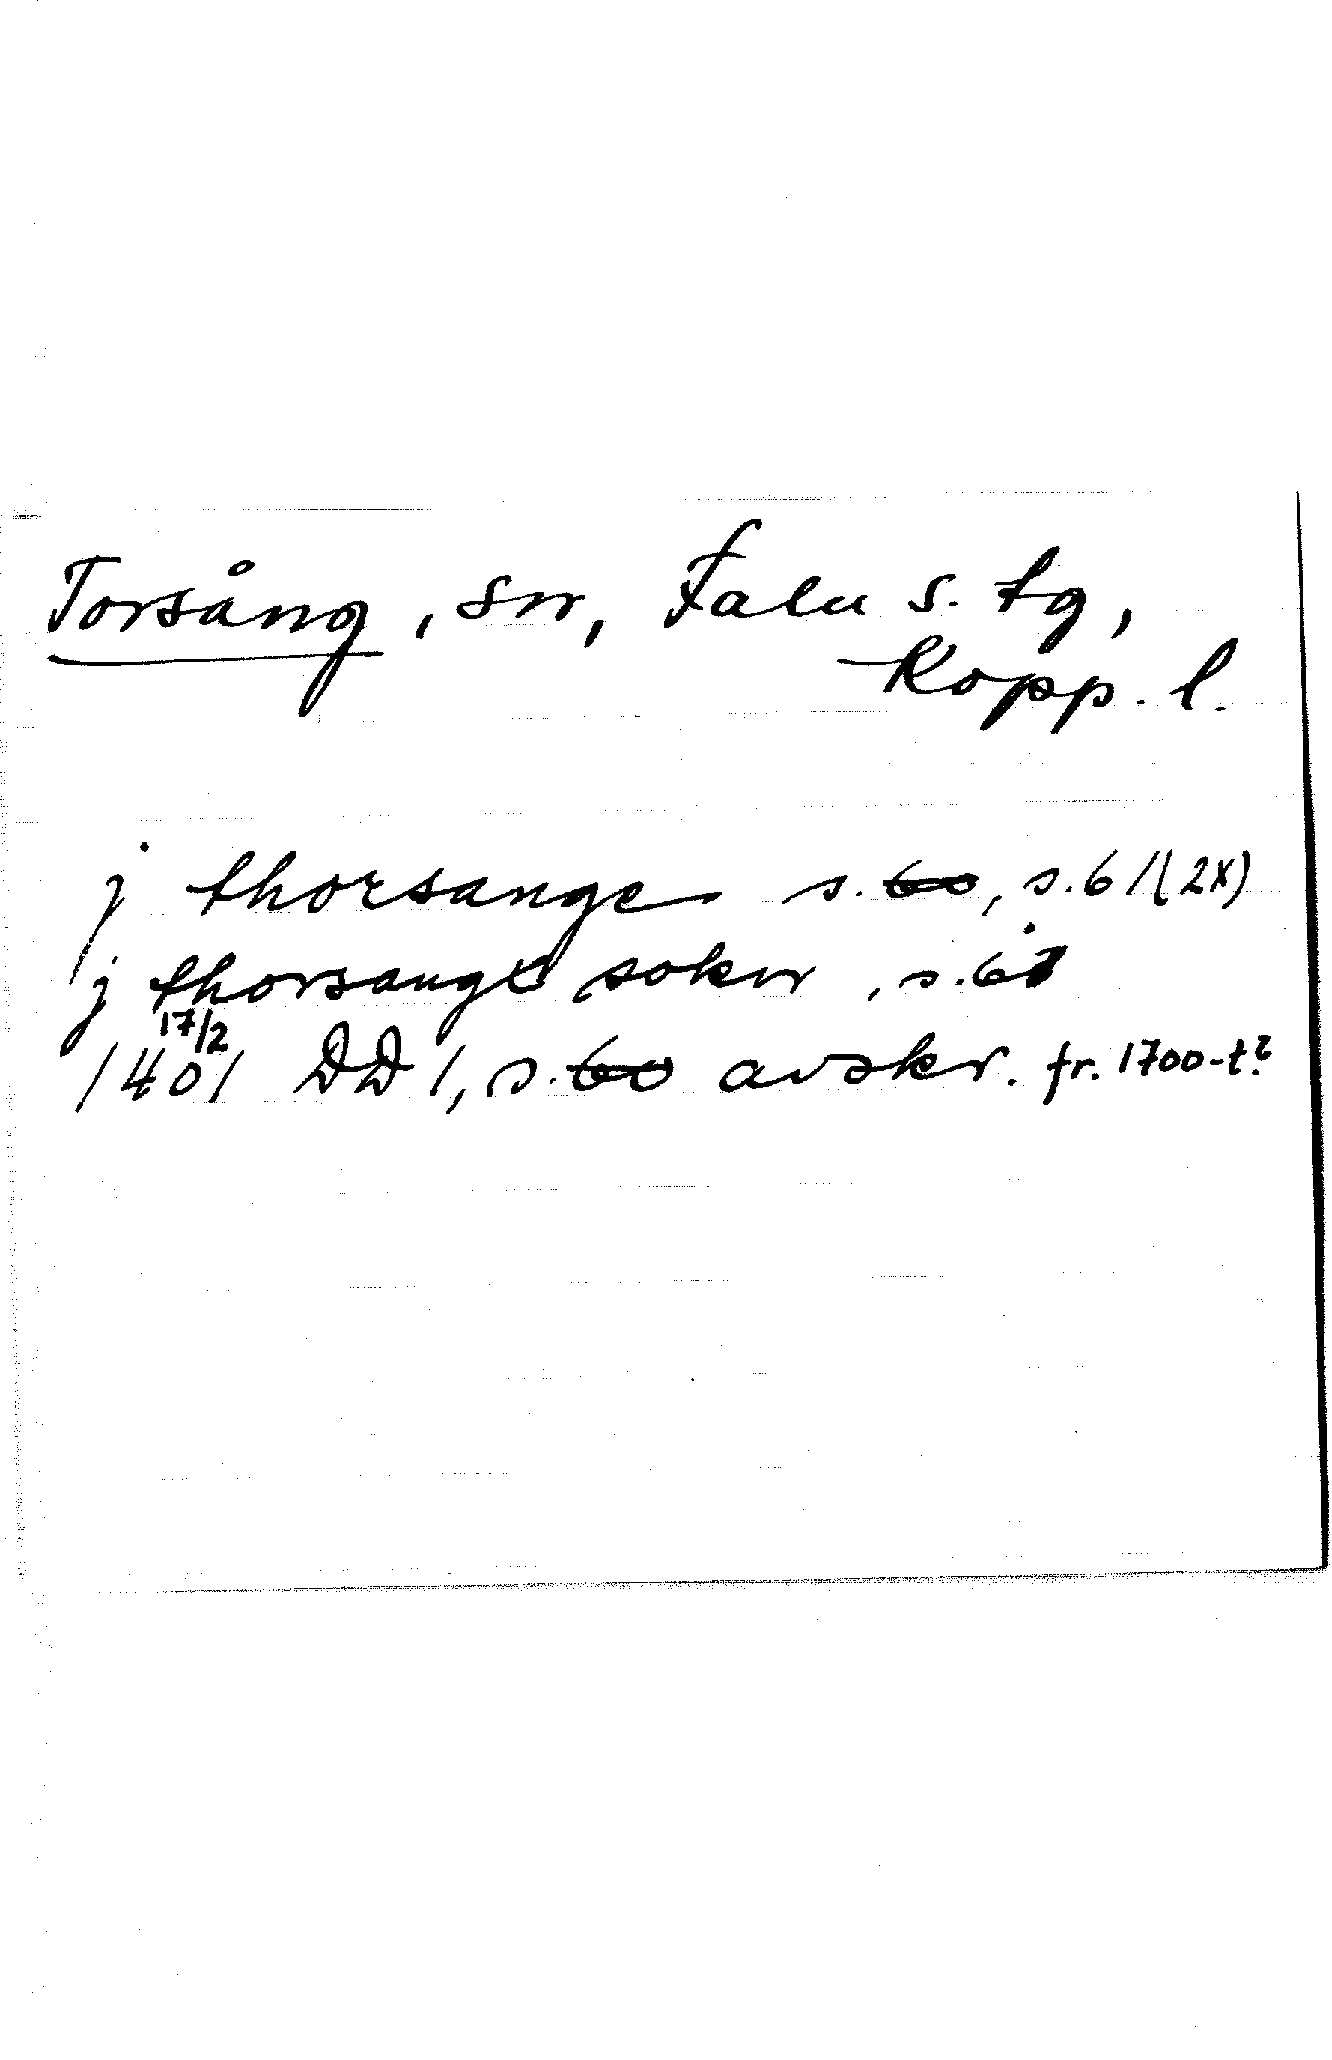 Torsång, sn, Falu s. tg,
Kopp. l.
j thorsange s. 60, s. 61 (2x)
j thorsangx sokn, s. 61
17/2
1401 DD 1, s. 60 avskr. fr. 1700-t?